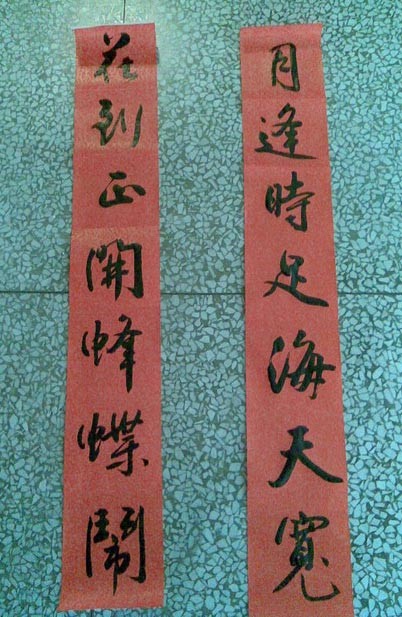 月逢時足海天寬
花到正開蜂蝶鬧